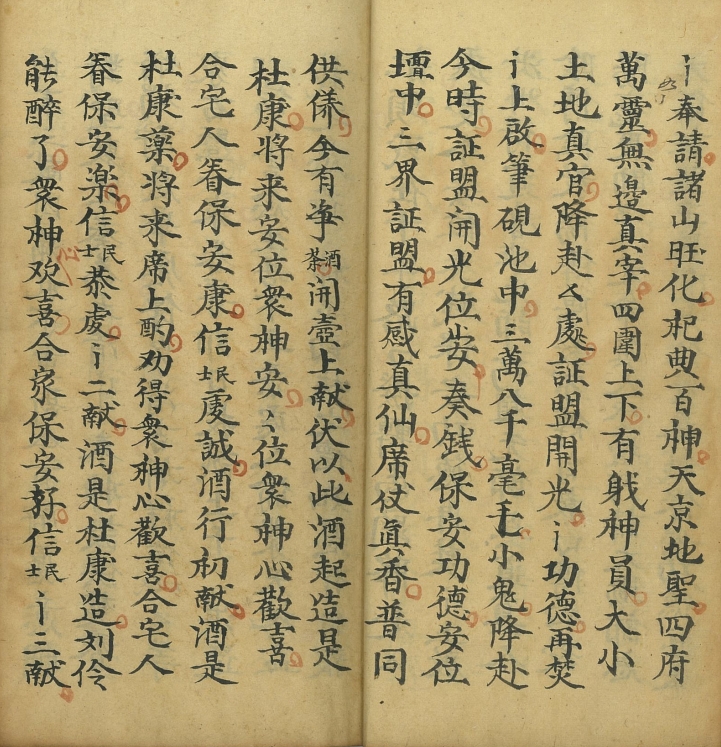 氵奉請諸山旺化祀典百神天京地聖四府
萬靈無邊真宰四圍上下有戝神員大小
土地真官降赴厶處証盟開光氵功德再焚
氵上啟筆硯池中三萬八千毫毛小鬼降赴
今時証盟開光位安奏銭保安功德安位
壇中三界証盟有感真仙席仗真香普同
供儀今有净酒茶開壺上献伏以此酒起造是
杜康将来安位衆神安〻位衆神心歡喜
合宅人眷保安康信士民虔誠酒行初献酒是
杜康藥将来席上酌劝得衆神心歡喜合宅人
眷保安楽信士民恭虔氵二献酒是杜康造刘伶
能醉了衆神欢喜心合家保安好信士民氵三献